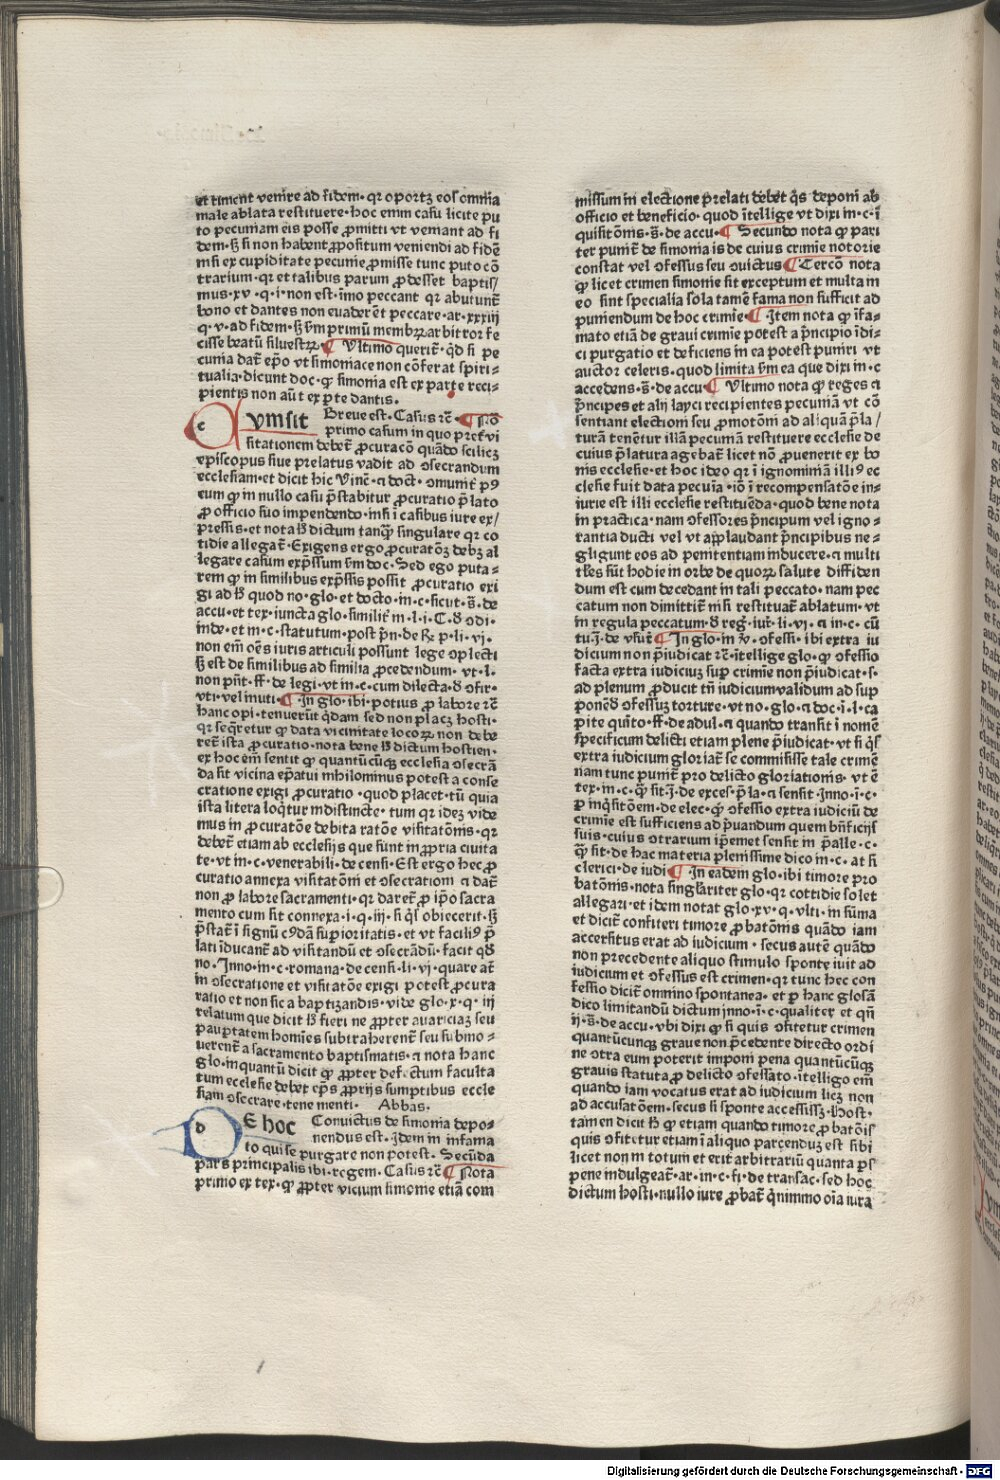 et timent venire ad fidem · qr oportꝫ eos omnia
male ablata restituere · hoc enim casu licite pu
to pecuniam eis posse ꝓmitti vt veniant ad fi
dem · ꝫ si non habent ꝓpositum veniendi ad fidē
nisi ex cupiditate pecunie ꝓmisse tunc puto cō
trarium · qr et talibus parum ꝓdesset baptis/
mus · xv · q · i · non est · imo peccant qr abutunt̄
bono et dantes non euaderēt peccare · ar · xxxiij
q · v · ad fidem · ꝫ ẜm primū membꝝ arbitror fe
cisse beatū siluestꝝ · ¶ Vltimo querit̄ · qd si pe
cunia dat̄ epō vt simoniace non cōferat spiri-
tualia · dicunt doc · ꝙ simonia est ex parte reci-
pientis non aūt ex pte dantis ·
c Vm sit Breue est · Casus rē · ¶ No
primo casum in quo preter vi
sitationem debet̄ ꝓcuracō quādo scilicꝫ
episcopus siue prelatus vadit ad ɔsecrandum
ecclesiam · et dicit hic Vinc̄ · ⁊ doct · ɔmunit̄ pꝰ
eum ꝙ in nullo casu p̄stabitur ꝓcuratio p̄lato
ꝓ officio suo impendendo · nisi ī casibus iure ex/
pressis · et nota hꝫ dictum tanqꝫ singulare qr co
tidie allegat̄ · Exigens ergo ꝓcuratōꝫ debꝫ al
legare casum exp̄ssum ẜm doc · Sed ego puta-
rem ꝙ in similibus exp̄ssis possit ꝓcuratio exi
gi ad hꝫ quod no · glo · et docto · in · c · sicut · s̄ · de
accu · et tex · iuncta glo · similit̄ in · l · i · C · d̄ ɔdi ·
inde · et in · c · statutum · post pn̄ · de R̄ p · li · vi ·
non em̄ oēs iuris articuli possunt lege ɔplecti
ꝫ est de similibus ad similia ꝓcedendum · vt · l ·
non pn̄t · ff̄ · de legi · vt in · c · cum dilecta · d̄ ɔfir ·
vti · vel inuti · ¶ In glo · ibi · potius ꝓ labore rē
hanc opi · tenuerūt qdam sed non placꝫ hosti ·
qr seq̄retur ꝙ data vicinitate locoꝝ non debe
ret̄ ista ꝓcuratio · nota bene hꝫ dictum hostien ·
ex hoc em̄ sentit ꝙ quantūcūqꝫ ecclesia ɔsecrā
da sit vicina ep̄atui nihilominus potest a conse
cratione exigi ꝓcuratio · quod placet · tū quia
ista litera loq̄tur indistincte · tum qr idez vide
mus in ꝓcuratōe debita ratōe visitatōnis · qr
debet̄ etiam ab ecclesijs que sunt in ꝓpria ciuita
te · vt in · c · venerabili · de censi · Est ergo hec ꝓ
curatio annexa visitatōni et ɔsecrationi ⁊ dat̄
non ꝓ labore sacramenti · qr daret̄ ꝓ ip̄o sacra
mento cum sit connexa · i · q · iij · si q̄s obiecerit · ꝫ
p̄stat̄ ī signū cꝰdā supioritatis · et vt faciliꝰ p̄
lati īducant̄ ad visitandū et ɔsecrādū · facit qd̄
no · Inno · in · c · romana · de censi · li · vj · quare at̄
in ɔsecratione et visitatōe exigi potest ꝓcura
ratio et non sic a baptizandis · vide glo · x · q · iij
relatum que dicit hꝫ fieri ne ꝓpter auariciaꝫ seu
paupratem homīes subtraherent̄ seu submo-
uerent̄ a sacramento baptismatis · ⁊ nota hanc
glo · inquantū dicit ꝙ ꝓpter defectum faculta
tum ecclesie debet ep̄s ꝓprijs sumptibus eccle
siam ɔsecrare · tene menti · Abbas ·
d E hoc Conuictus de simonia depo-
nendus est · Idem in infama
to qui se purgare non potest · Secūda
pars principalis ibi · regem · Casus rē · ¶ Nota
primo ex tex · ꝙ ꝓpter vicium simonie etiā com
missum in electione prelati debēt q̄s deponi ab
officio et beneficio · quod ītellige vt dixi in · c · ī
quisitōnis · s̄ · de accu · ¶ Secundo nota ꝙ pari
ter punit̄ de simonia is de cuius crimie notorie
constat vel ɔfessus seu ɔuictus ¶ Tercō nota
ꝙ licet crimen simonie sit exceptum et multa in
eo sint specialia sola tamē fama non sufficit ad
puniendum de hoc crimīe · ¶ Item nota ꝙ īfa-
mato etiā de graui crimīe potest a p̄ncipio īdi-
ci purgatio et deficiens in ea potest puniri vt
auctor celeris · quod limita ẜm ea que dixi in · c
accedens · s̄ · de accu ¶ Vltimo nota ꝙ reges ⁊
p̄ncipes et alij layci recipientes pecuniā vt cō
sentiant electioni seu ꝓmotōni ad aliquā p̄la/
turā tenēt̄ur illā pecuniā restituere ecclesie de
cuius p̄latura agebat̄ licet nō ꝓuenerit ex bo
nis ecclesie · et hoc ideo qr ī ignominiā illiꝰ ec
clesie fuit data pecuīa · iō ī recompensatōe in-
iurie est illi ecclesie restituēda · quod bene nota
in practica · nam ɔfessores p̄ncipum vel igno-
rantia ducti vel vt applaudant p̄ncipibus ne-
gligunt eos ad penitentiam inducere · ⁊ multi
tles sūt hodie in orbe de quoꝝ salute diffiden
dum est cum decedant in tali peccato · nam pec
catum non dimittit̄ nisi restituat̄ ablatum · vt
in regula peccatum · d̄ reg · iur · li · vi · ⁊ in · c · cū
tu · j · de vsur̄ ¶ In glo · in v̄ · ɔfessi · ibi extra iu
dicium non p̄iudicat rē · ītellige glo · ꝙ ɔfessio
facta extra iudiciuꝫ sup crimīe non p̄iudicat · s ·
ad plenum ꝓducit tn̄ iudicium validum ad sup
ponēd̄ ɔfessuꝫ torture · vt no · glo · ⁊ doc · ī · l · ca
pite quīto · ff̄ · de adul · ⁊ quando transit ī nomē
specificum delicti etiam plene p̄iudicat · vt si q̄s
extra iudicium gloriat̄ se commisisse tale crimē
nam tunc punit̄ pro delicto gloriationis · vt ē
tex · in · c · ꝙ sit · j · de exces · p̄la · ⁊ sensit · Inno · ī · c ·
p inq̄sitōem · de elec · ꝙ ɔfessio extra iudiciū de
crimīe est sufficiens ad p̄uandum quem bn̄ficijs
suis · cuius ɔtrarium ip̄emet sensit in p̄alle · c ·
ꝙ sit · de hac materia plenissime dico in · c · at si
clerici · de iudi ¶ In eadem glo · ibi timore pro
batōnis · nota singlariter glo · qr cottidie solet
allegari · et idem notat glo · xv · q · vlti · in sūma
et dicit̄ confiteri timore ꝓbatōnis quādo iam
accersitus erat ad iudicium · secus autē quādo
non precedente aliquo stimulo sponte iuit ad
iudicium et ɔfessus est crimen · qr tunc hec con
fessio dicit̄ omnino spontanea · et p hanc glosā
dico limitandū dictum inno · ī · c · qualiter et qn̄
ij · s̄ · de accu · vbi dixi ꝙ si quis ɔfitetur crimen
quantūcunqꝫ graue non p̄cedente directo ordi
ne ɔtra eum poterit imponi pena quantūcūqꝫ
grauis statuta ꝓ delicto ɔfessato · ītelligo em̄
quando iam vocatus erat ad iudicium licꝫ non
ad accusatōem · secus si sponte accessissꝫ · Host ·
tamen dicit hꝫ ꝙ etiam quando timore ꝓbatōis
quis ɔfitetur etiam ī aliquo parcenduꝫ est sibi
licet non in totum et erit arbitrariū quanta ps
pene indulgeat̄ · ar · in · c · fi · de transac · sed hoc
dictum hosti · nullo iure ꝓbat̄ q̄nimmo oīa iura
Digitalisierung gefördert durch die Deutsche Forschungsgemeinschaft - DFG